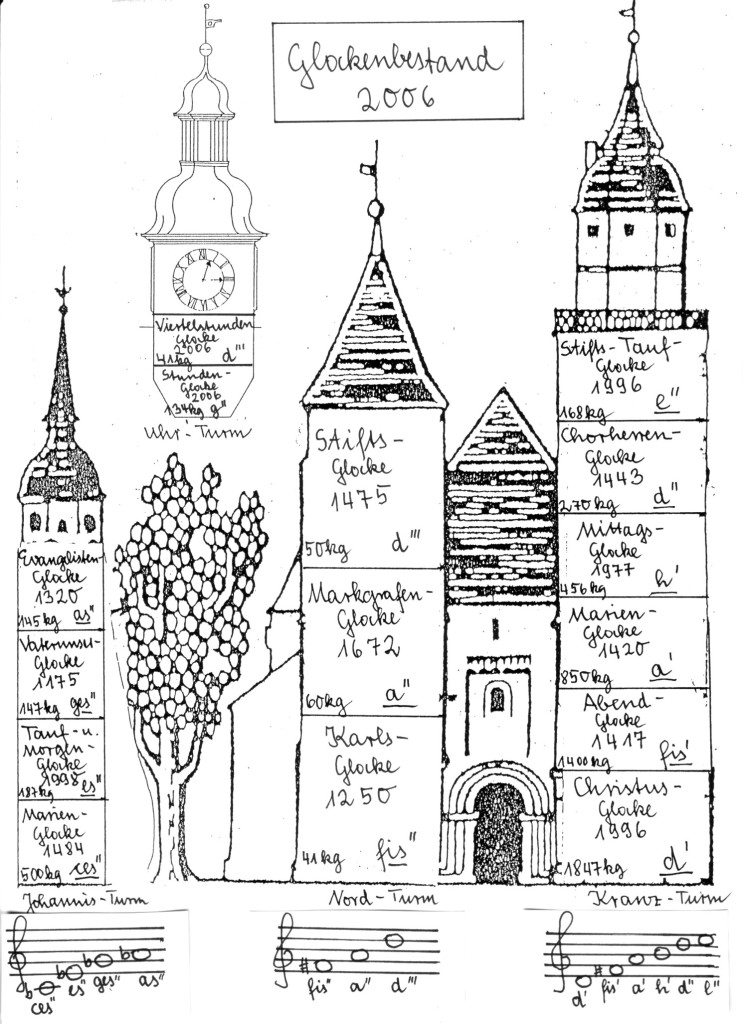 Glockenbestand
2006
Viertelstunden
Glocke
2006
41kg d'''
Stunden-
Glocke
2006
134kg g''
Uhr-Turm
Evangelisten-
Glocke
1320
145kg as''
Vaterunser-
Glocke
1175
147kg ges''
Tauf-u.
Morgen-
Glocke
1998
187kg es''
Marien-
Glocke
1484
500kg ces''
Johannis-Turm
Stifts-
Glocke
1475
50kg d'''
Markgrafen-
Glocke
1672
60kg a''
Karls-
Glocke
1250
41kg fis''
Nord-Turm
Stifts-Tauf-
Glocke
1996
168kg e''
Chorherren-
Glocke
1443
270kg d''
Mittags-
Glocke
1977
456kg h'
Marien-
Glocke
1420
850kg a'
Abend-
Glocke
1417
1400kg fis'
Christus-
Glocke
1996
1847kg d'
Kranz-Turm
ces'' es'' ges'' as''
fis'' a'' d'''
d' fis' a' h' d'' e''